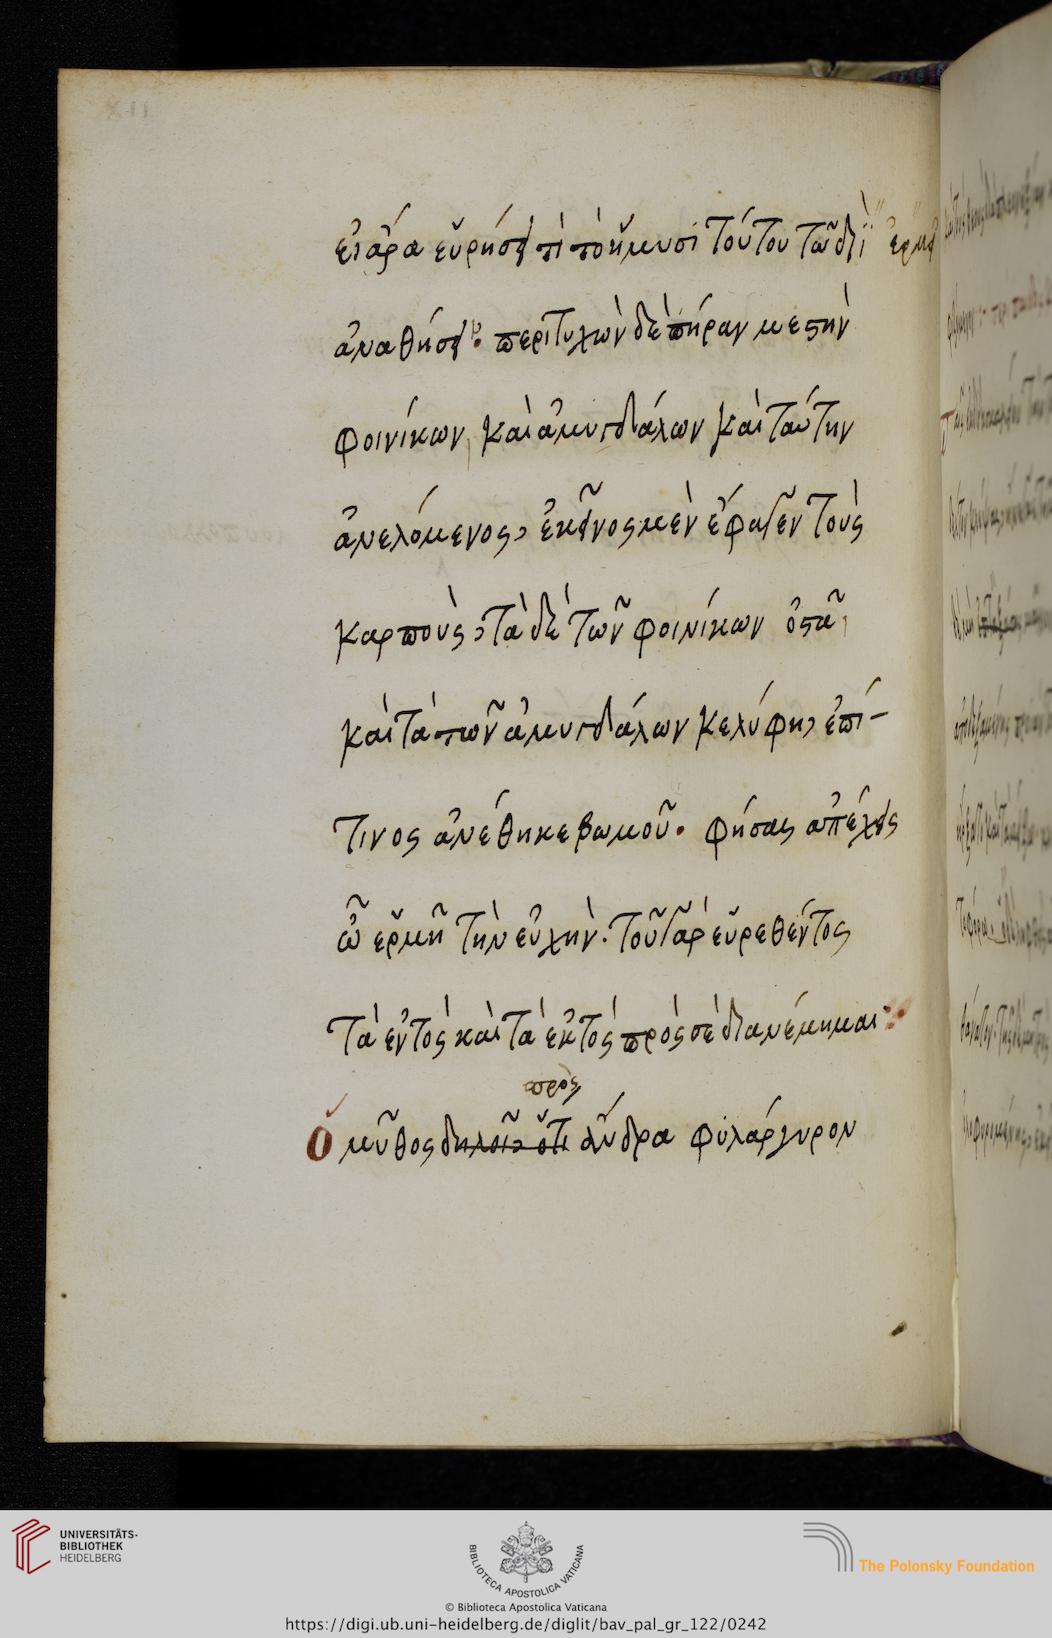 εἰ ἄρα εὑρήσει τὶ τὸ ἥμυσι τούτου τῶ διῒ ἑρμῆ
ἀναθήσειν. περιτυχὼν δὲ πήραν μεστὴν
φοινίκων, καὶ ἀμυγδάλων καὶ ταύτην
ἀνελόμενος, ἐκεῖνος μὲν ἔφαγεν τοὺς
καρποὺς, τὰ δὲ τῶν φοινίκων ὀστᾶ,
καὶ τὰ τῶν ἀμυγδάλων κελύφη, ἐπί-
τινος ἀνέθηκε βωμοῦ. φήσας ἀπέχεις
ὦ ἑρμῆ τὴν εὐχὴν. τοῦ γὰρ εὑρεθέντος
τὰ ἐντὸς καὶ τὰ ἐκτὸς πρὸς σὲ διανέμημαι:
πρὸς
Ὁ μῦθος δηλοῖ, ὅτι ἄνδρα φυλάργυρον
UNIVERSITÄTS-
BIBLIOTHEK
HEIDELBERG
BIBLIOTECA APOSTOLICA VATICANA
The Polonsky Foundation
© Biblioteca Apostolica Vaticana
https://digi.ub.uni-heidelberg.de/diglit/bav_pal_gr_122/0242